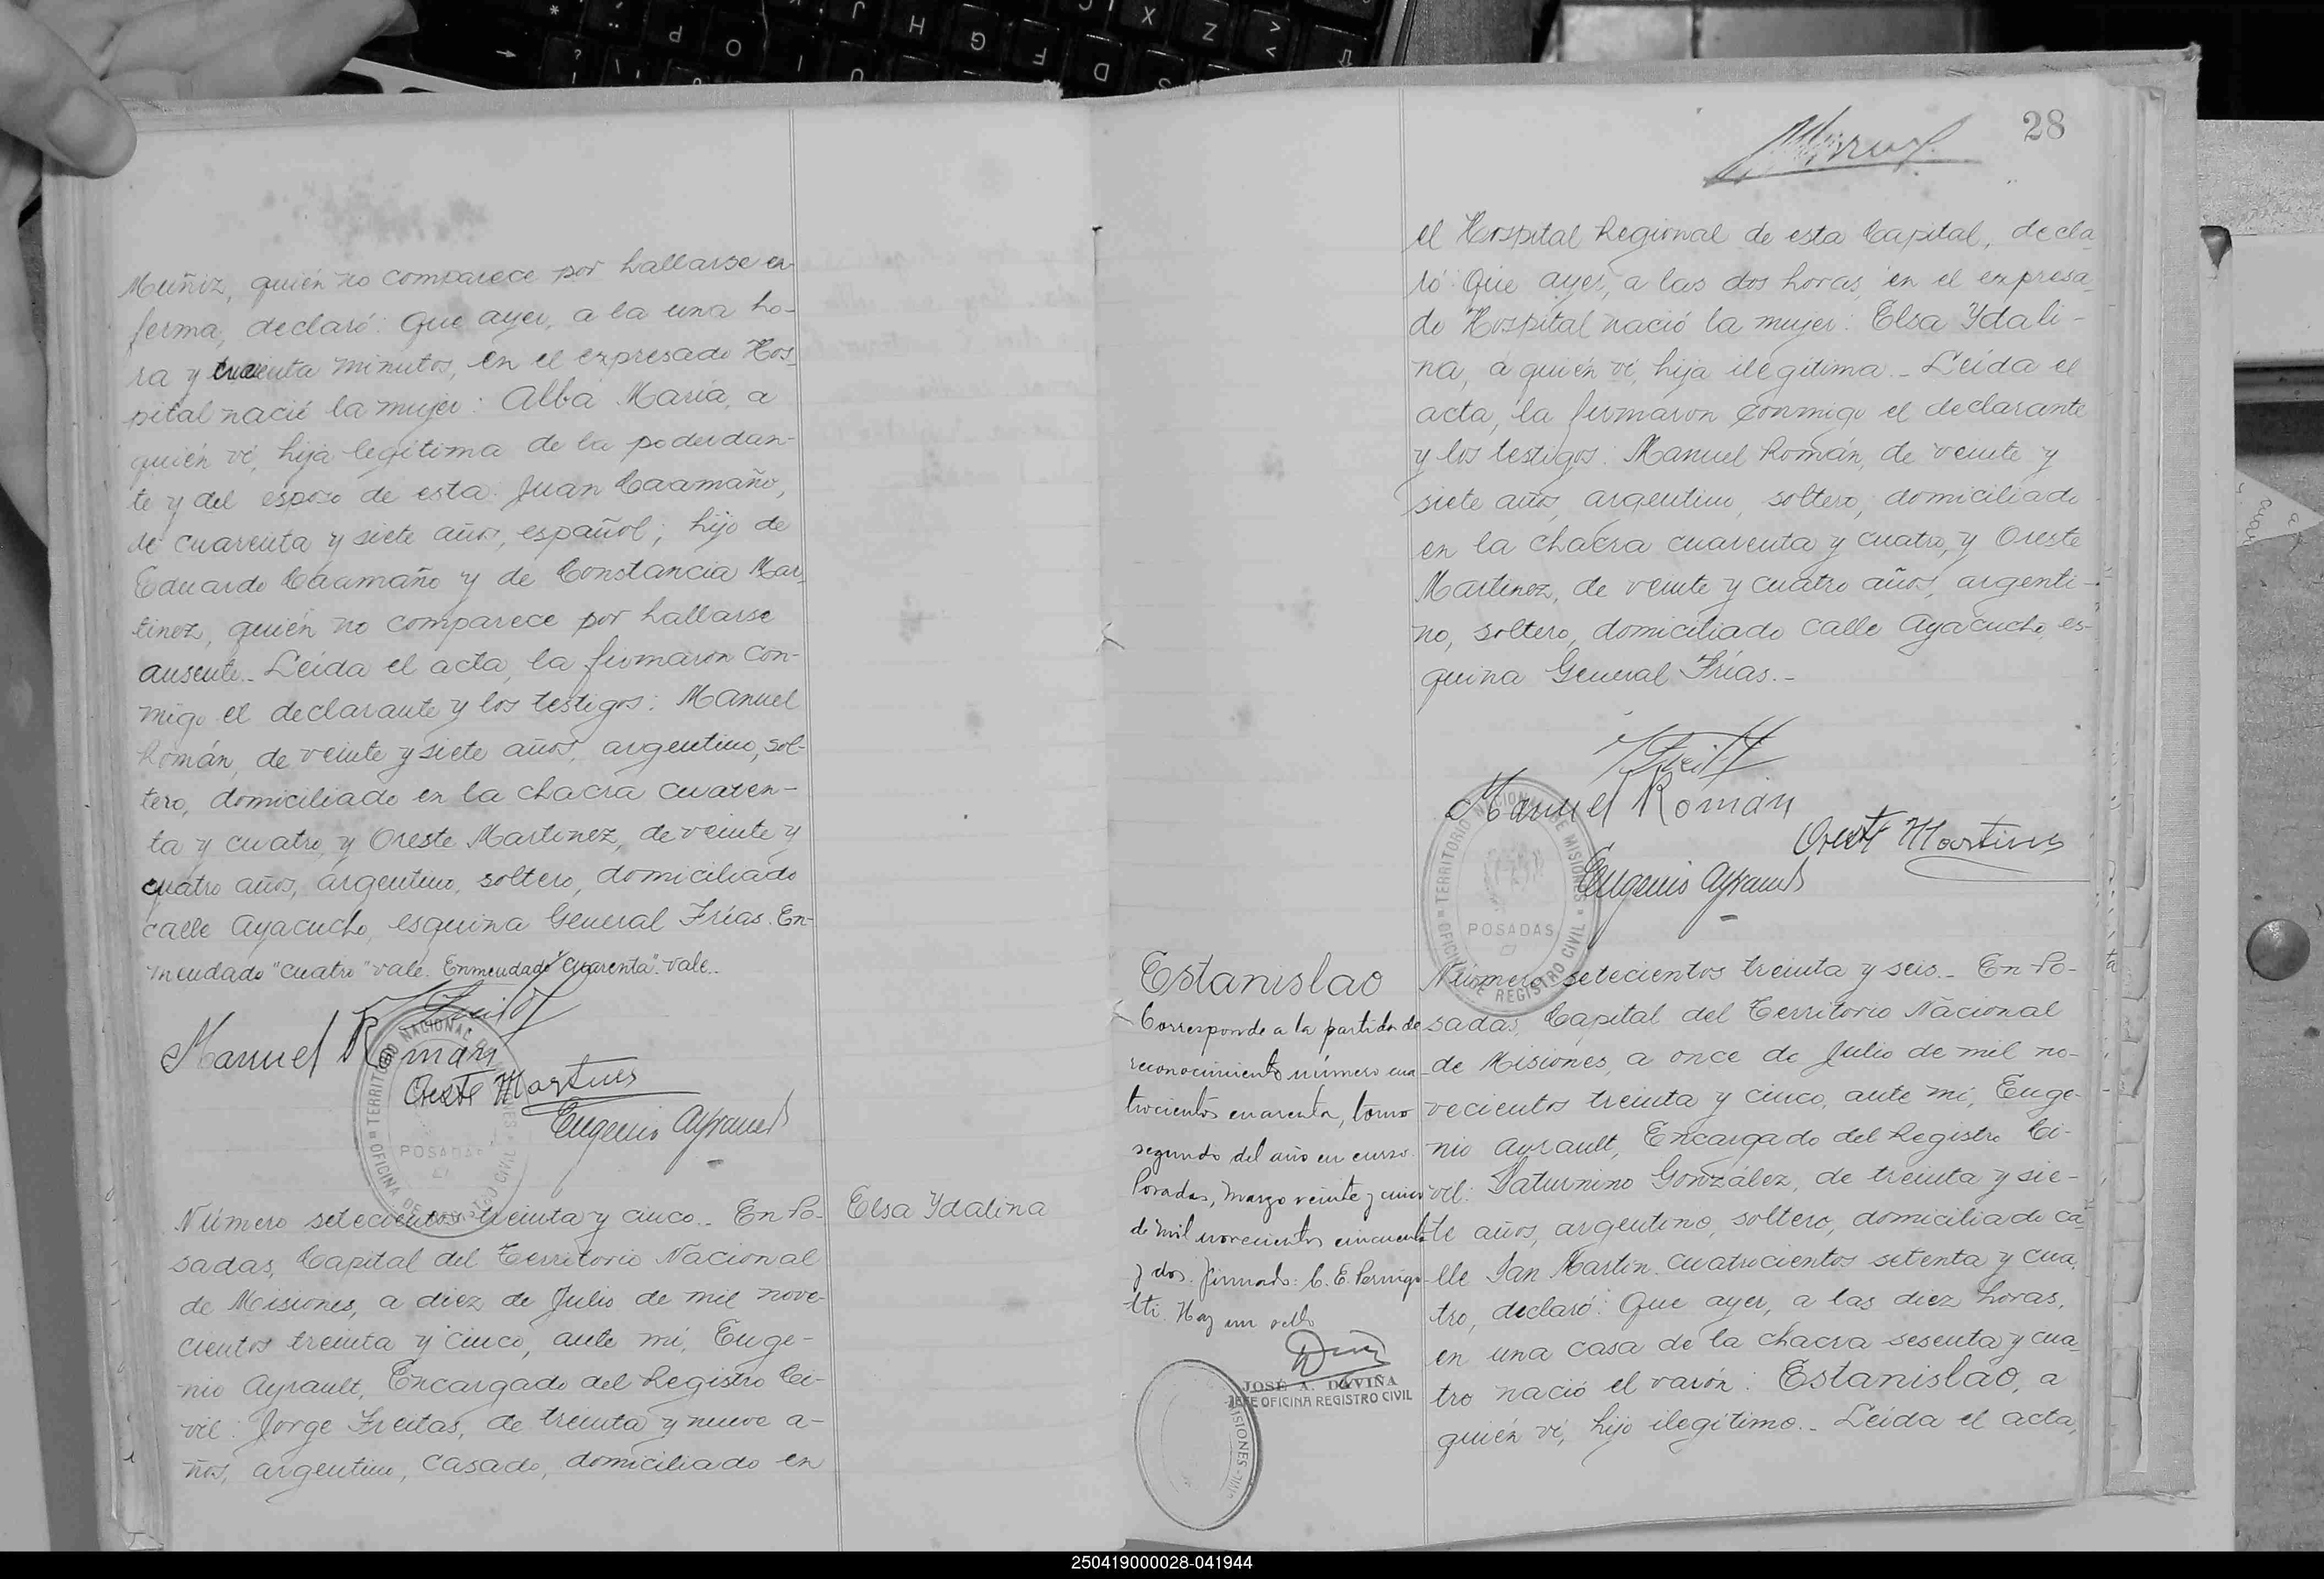 Muñiz, quién no comparece por hallarse en-
ferma, declaró: Que ayer, a la una ho-
ra y cuarenta minutos, en el expresado Hos-
pital nació la mujer: Alba María, a
quién ví, hija legítima de la poderdan-
te y del esposo de esta: Juan Caamaño,
de cuarenta y siete años, español; hijo de
Eduardo Caamaño y de Constancia Mar-
tinez, quién no comparece por hallarse
ausente.- Leída el acta, la firmaron con-
migo el declarante y los testigos: Manuel
Román, de veinte y siete años, argentino, sol-
tero, domiciliado en la chacra cuaren-
ta y cuatro, y Oreste Martinez, de veinte y
cuatro años, argentino, soltero, domiciliado
calle Ayacucho, esquina General Frías. En-
mendado "cuatro" vale. Enmendado "cuarenta". vale..
Manuel Román
Oreste Martines
Eugenio Ayrault
TERRITORIO NACIONAL DE MISIONES
POSADAS
OFICINA DE REGISTRO CIVIL
Número setecientos treinta y cinco.- En Po-
sadas, Capital del Territorio Nacional
de Misiones, a diez de Julio de mil nove-
cientos treinta y cinco, ante mí, Euge-
nio Ayrault, Encargado del Registro Ci-
vil: Jorge Freitas, de treinta y nueve a-
ños, argentino, casado, domiciliado en
Elsa Ydalina
28
el Hospital Regional de esta Capital, decla-
ró: Que ayer, a las dos horas, en el expresa-
do Hospital nació la mujer: Elsa Ydali-
na, a quién ví, hija ilegítima.- Leída el
acta, la firmaron conmigo el declarante
y los testigos: Manuel Román, de veinte y
siete años, argentino, soltero, domiciliado
en la chacra cuarenta y cuatro, y Oreste
Martinez, de veinte y cuatro años, argenti-
no, soltero, domiciliado calle Ayacucho, es-
quina General Frías.-
Manuel Román
Oreste Martines
Eugenio Ayrault
TERRITORIO NACIONAL DE MISIONES
POSADAS
OFICINA DE REGISTRO CIVIL
Estanislao
Corresponde a la partida de
reconocimiento número cua-
trocientos cuarenta, tomo
segundo del año en curso.
Posadas, marzo veinte y cinco
de mil novecientos cincuenta
y dos. Firmado: C. E. Pernigo-
tti. Hay un sello
JOSÉ A. DAVIÑA
JEFE OFICINA REGISTRO CIVIL
MISIONES
Número setecientos treinta y seis.- En Po-
sadas, Capital del Territorio Nacional
de Misiones, a once de Julio de mil no-
vecientos treinta y cinco, ante mí, Euge-
nio Ayrault, Encargado del Registro Ci-
vil: Saturnino González, de treinta y sie-
te años, argentino, soltero, domiciliado ca-
lle San Martín cuatrocientos setenta y cua-
tro, declaró: Que ayer, a las diez horas,
en una casa de la chacra sesenta y cua-
tro nació el varón: Estanislao, a
quién ví, hijo ilegítimo.- Leída el acta,
250419000028-041944